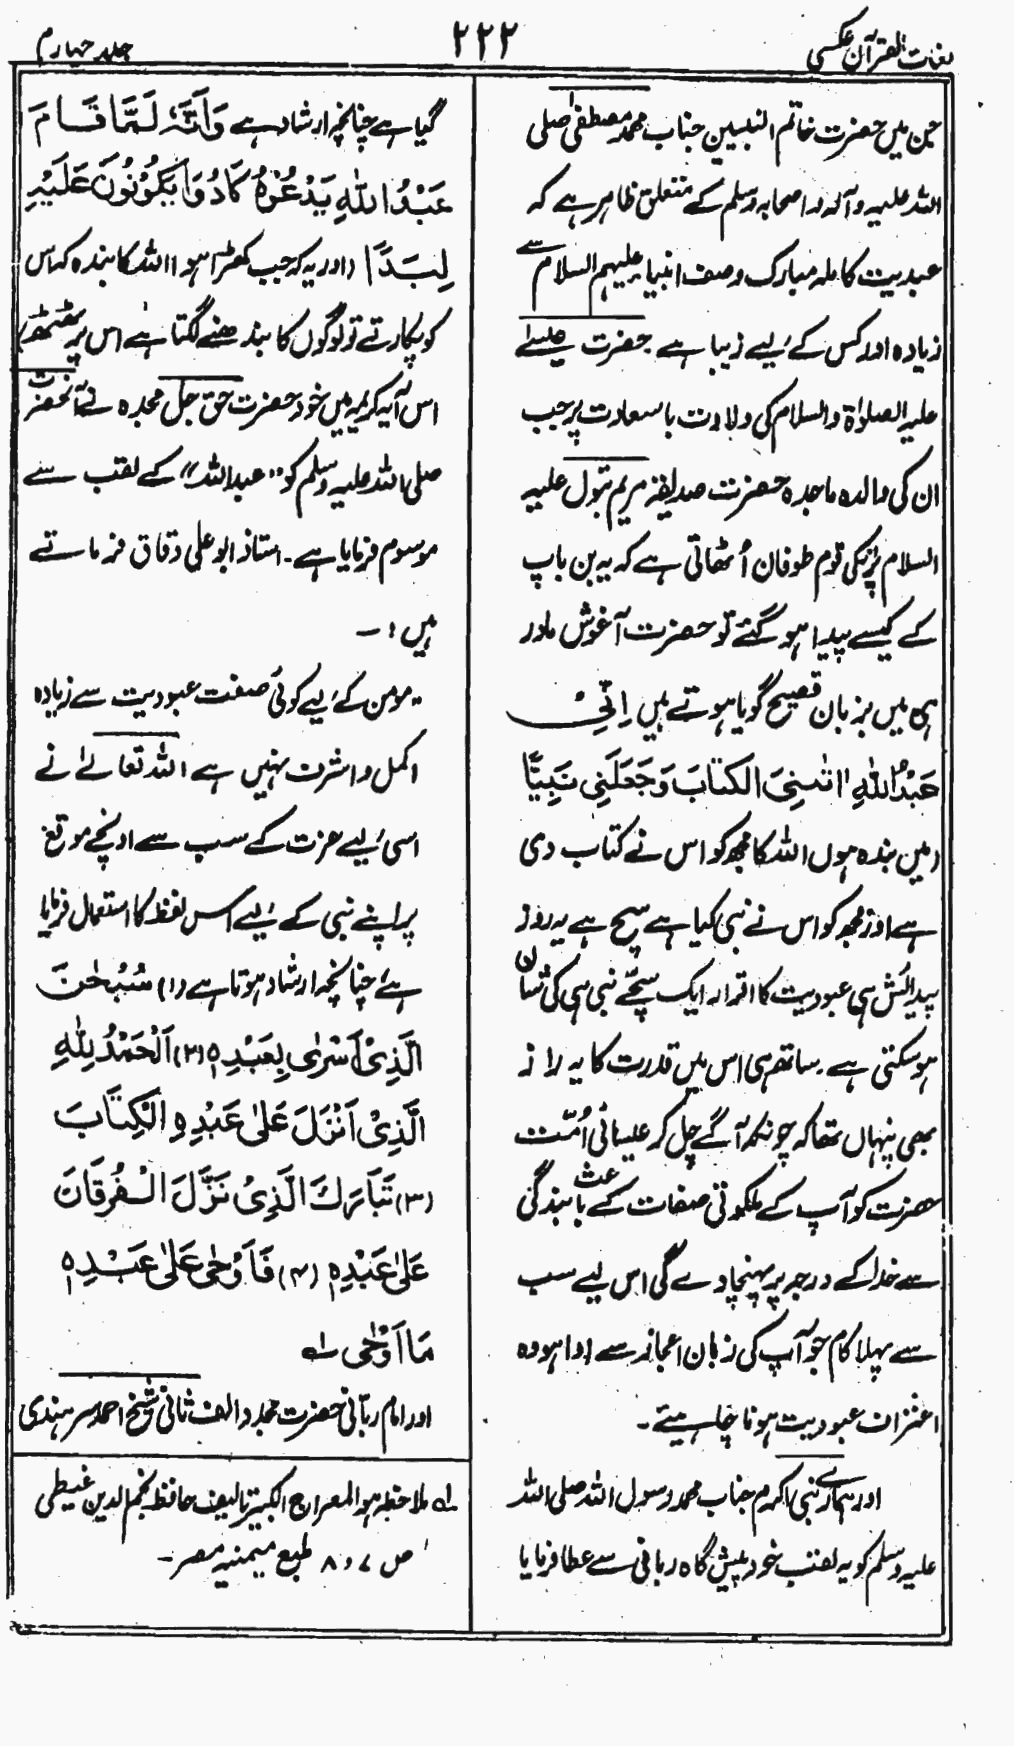 لغات القرآن عکسی
۲۲۲
جلد چہارم
جن میں حضرت خاتم النبیین جناب محمد مصطفیٰ صلی
اللہ علیہ وآلہ واصحابہ وسلم کے متعلق ظاہر ہے کہ
عبدیت کاملہ مبارک وصف انبیا علیہم السلام سے
زیادہ اور کس کے لیے زیبا ہے حضرت عیسےٰ
علیہ الصلوٰۃ والسلام کی ولادت باسعادت پر جب
ان کی والدہ ماجدہ حضرت صدیقہ مریم بتول علیہ
السلام پر انکی قوم طوفان اُٹھاتی ہے کہ یہ بن باپ
کے کیسے پیدا ہو گئے تو حضرت آغوش مادر
ہی میں بزبان فصیح گویا ہوتے ہیں اِنِّیْ
عَبْدُاللّٰہِ اٰتٰنِیَ الْکِتَابَ وَجَعَلَنِی نَبِیًّا
(میں بندہ ہوں اللہ کا مجھ کو اس نے کتاب دی
ہے اور مجھ کو اس نے نبی کیا ہے سچ ہے یہ روز
پیدائش ہی عبودیت کا اقرار ایک سچّے نبی ہی کی شان
ہوسکتی ہے۔ ساتھ ہی اس میں قدرت کا یہ راز
بھی پنہاں تھا کہ چونکہ آگے چل کر عیسائی اُمّت
حضرت کو آپ کے ملکوتی صفات کے باعث بندگی
سے خدا کے درجہ پر پہنچا دے گی اس لیے سب
سے پہلا کام جو آپ کی زبان اعجاز سے ادا ہو وہ
اعتراف عبودیت ہونا چاہیئے۔
اور ہمارے نبی اکرم جناب محمد رسول اللہ صلی اللہ
علیہ وسلم کو یہ لقب خود پیش گاہ ربانی سے عطا فرمایا
گیا ہے چنانچہ ارشاد ہے وَاَنَّہٗ لَمَّا قَامَ
عَبْدُ اللّٰہِ یَدْعُوْہُ کَادُوْا یَکُوْنُوْنَ عَلَیْہِ
لِبَدًا (اور یہ کہ جب کھڑا ہو اللہ کا بندہ کہ اس
کو پکارے تو لوگوں کا بندھنے لگتا ہے اس پر ٹھٹھ)
اس آیہ کریمہ میں خود حضرت حق جل مجدہ نے آنحضرت
صلی اللہ علیہ وسلم کو "عبداللہ" کے لقب سے
موسوم فرمایا ہے۔ استاذ ابو علی دقاق فرماتے
ہیں :۔
"مومن کے لیے کوئی صفت عبودیت سے زیادہ
اکمل و اشرف نہیں ہے اللہ تعالےٰ نے
اسی لیے عزت کے سب سے اونچے موقع
پر اپنے نبی کے لیے اس لفظ کا استعمال فرمایا
ہے چنانچہ ارشاد ہوتا ہے (۱) سُبْحٰنَ
الَّذِیْ اَسْرٰی بِعَبْدِہٖ (۲) اَلْحَمْدُ لِلّٰہِ
الَّذِیْ اَنْزَلَ عَلٰی عَبْدِہِ الْکِتَابَ
(۳) تَبَارَکَ الَّذِیْ نَزَّلَ الْفُرْقَانَ
عَلٰی عَبْدِہٖ (۴) فَاَوْحٰی عَلٰی عَبْدِہٖ
مَا اَوْحٰی ۱ھ
اور امام ربانی حضرت مجدد الف ثانی شیخ احمد سرہندی
۱ھ ملاحظہ ہو المعراج الکبیر تالیف حافظ نجم الدین غیطی
ص ۷ و ۸ طبع میمنیہ مصر۔